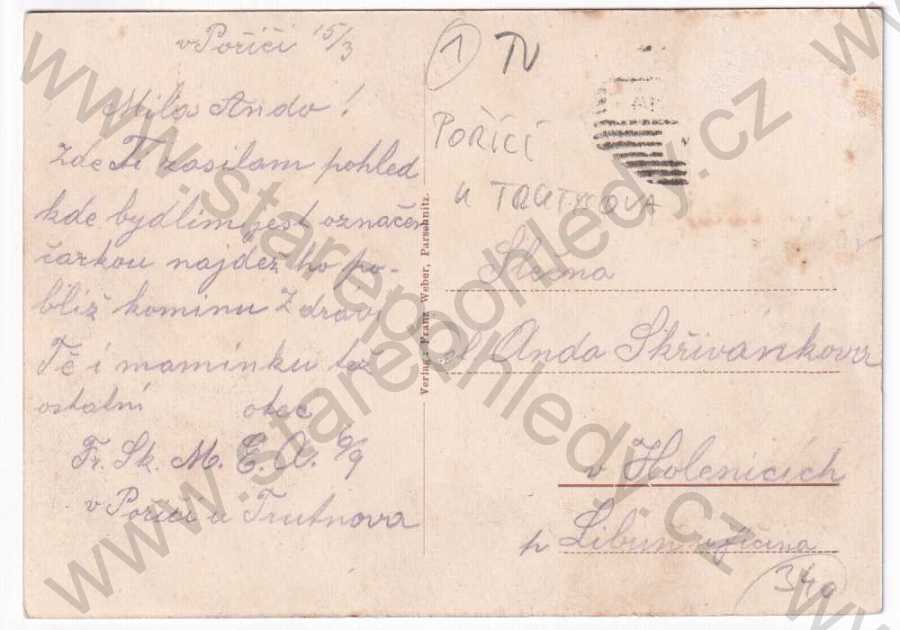 v Poříčí 15/3
Milá Ando!
Zde Ti zasílam pohled
kde bydlím jest označen
čarkou najdeš ho po-
blíž kominu Zdraví
Tě i maminku též
ostatní otec
Fr. Sk. M. E. A. 6/9
v Poříčí u Trutnova
Verlag: Franz Weber, Parschnitz.
1 TV
POŘÍČÍ
U TRUTNOVA
Slečna
Anda Skřivánkova
v Holenicích
p Libuň
340
www.starepohledy.cz